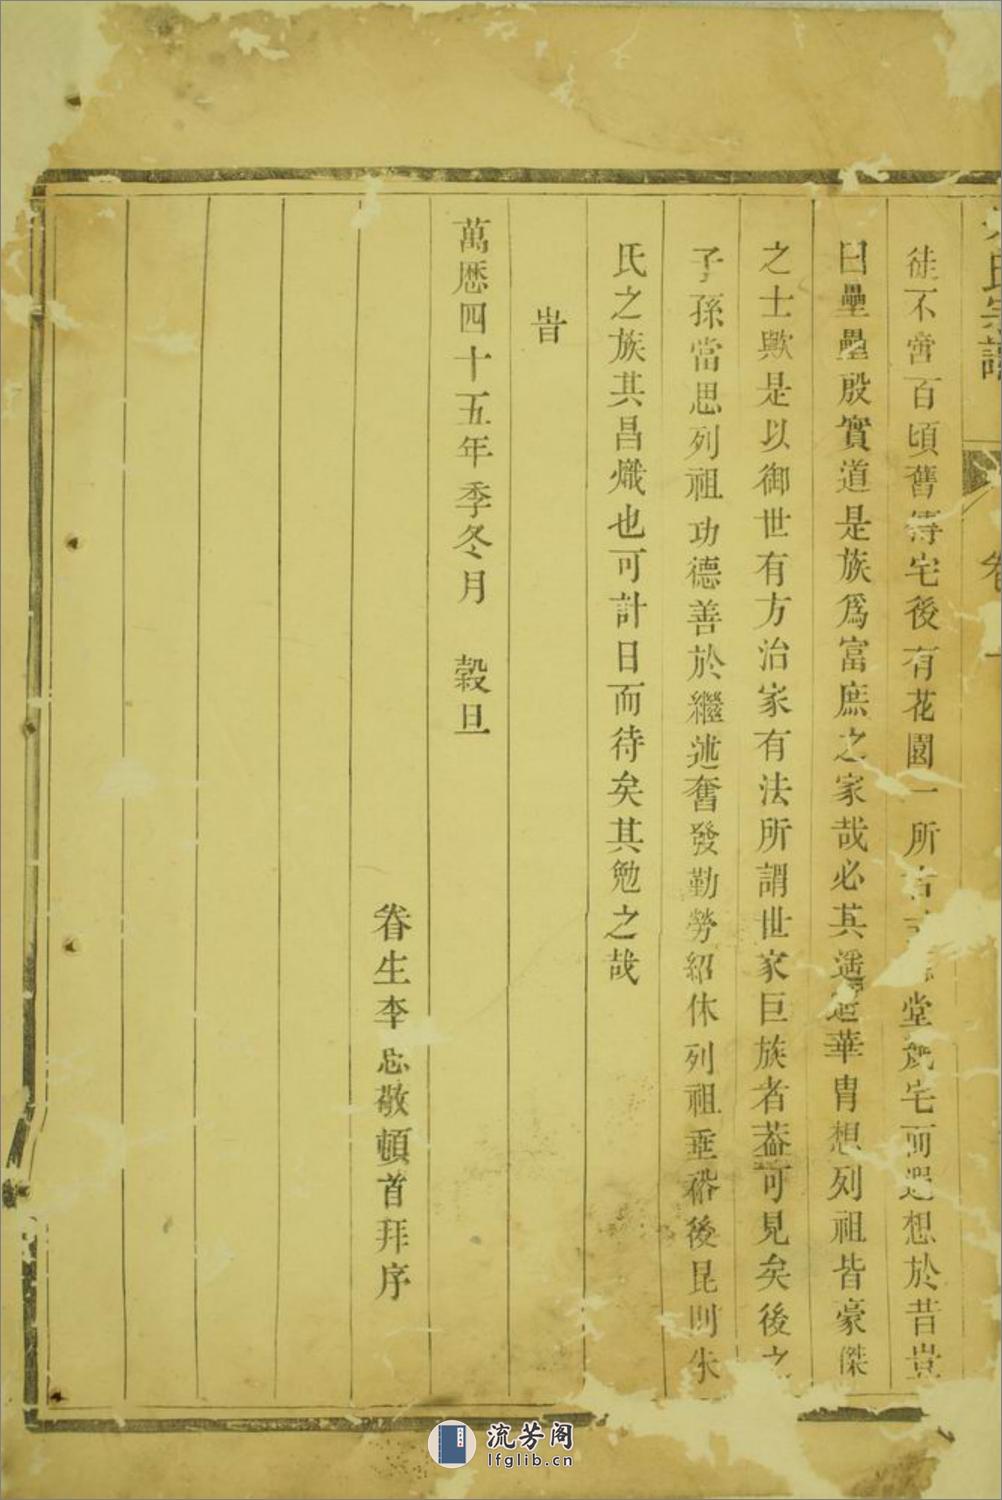 氏宗譜 卷一
徒不啻百頃舊傳宅後有花園一所古 堂為宅而遐想於昔豈
曰壘壘殷實道是族為富庶之家哉必其遙遙華胄想列祖皆豪傑
之士歟是以御世有方治家有法所謂世家巨族者葢可見矣後之
子孫當思列祖功德善於繼述奮發勤勞紹休列祖垂裕後昆則朱
氏之族其昌熾也可計日而待矣其勉之哉
旹
萬歷四十五年季冬月 榖旦
眷生李忠敬頓首拜序
流芳阁
lfglib.cn